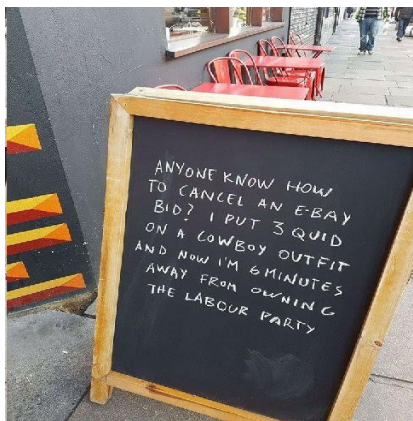 ANYONE KNOW HOW
TO CANCEL AN E-BAY
BID? I PUT 3 QUID
ON A COWBOY OUTFIT
AND NOW I'M 6 MINUTES
AWAY FROM OWNING
THE LABOUR PARTY